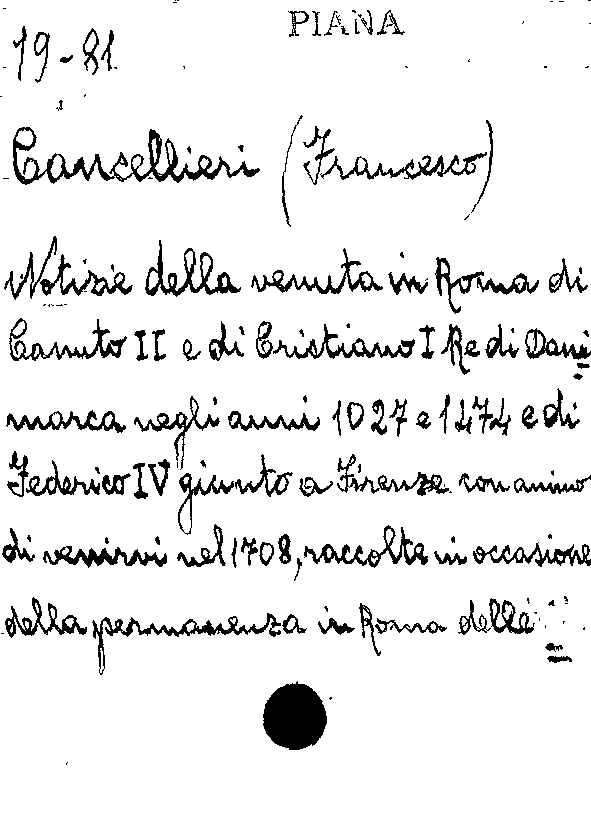 PIANA
19-81
Cancellieri (Francesco)
Notizie della venuta in Roma di
Canuto II e di Cristiano I Re di Dani=
marca negli anni 1027 e 1474 e di
Federico IV giunto a Firenze con animo
di venirvi nel 1708, raccolte in occasione
della permanenza in Roma delle =